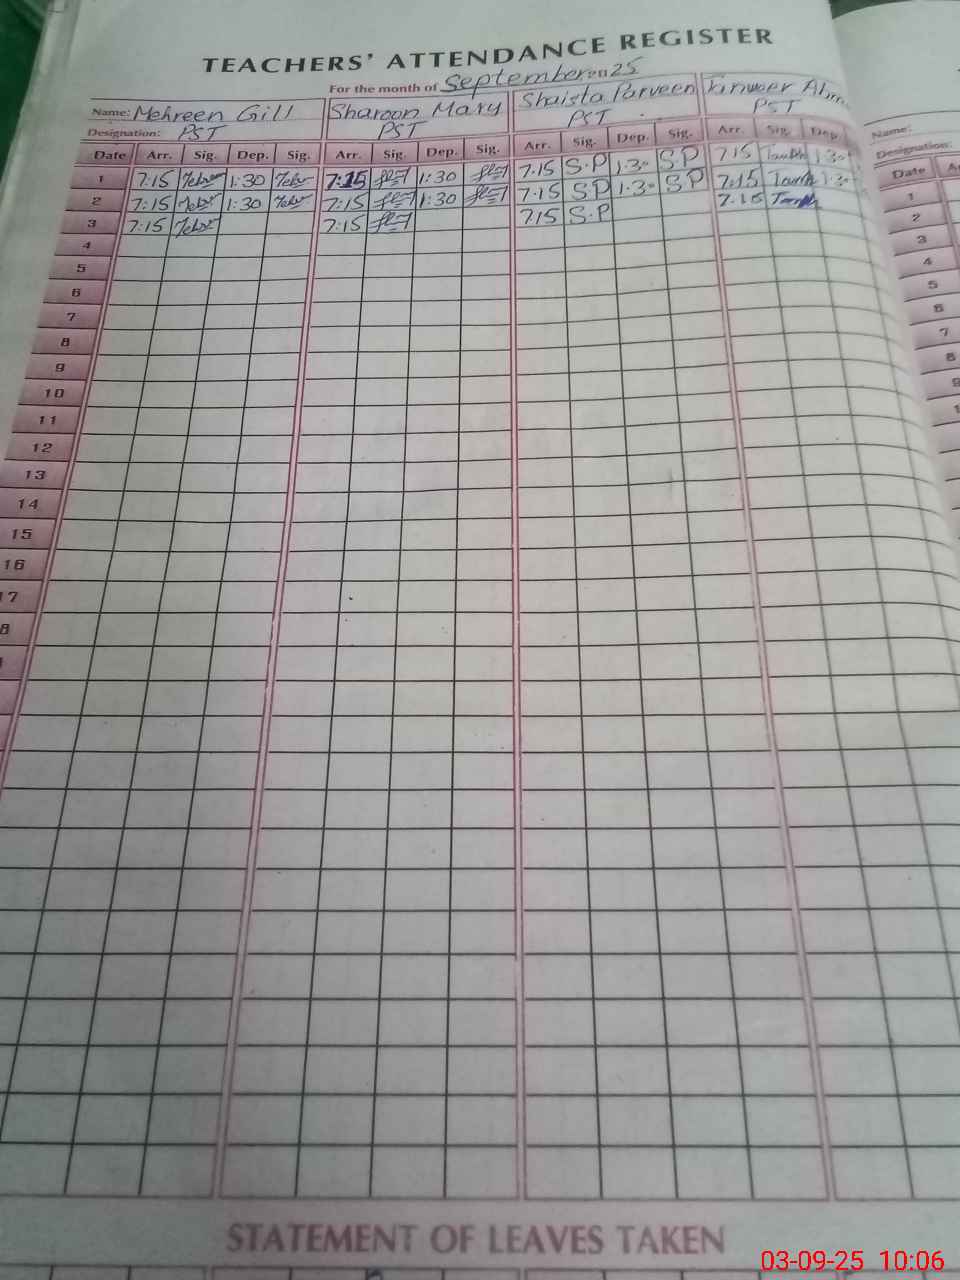 TEACHERS' ATTENDANCE REGISTER
For the month of September 2025
Name: Mehreen Gill Sharoon Mary Shaista Parveen Tanveer
Designation: PST PST PST PST
Date Arr. Sig. Dep. Sig. Arr. Sig. Dep. Sig. Arr. Sig. Dep. Sig. Arr. Sig. Dep.
1 7:15 1:30 7:15 1:30 7.15 S.P 1:30 S.P 7:15 1:30
2 7:15 1:30 7:15 1:30 7:15 S.P 1:30 S.P 7:15 1:30
3 7:15 7:15 7:15 S.P
4
5
6
7
8
9
10
11
12
13
14
15
16
17
8
Name:
Designation:
Date
1
2
3
4
5
6
7
8
9
STATEMENT OF LEAVES TAKEN
03-09-25 10:06